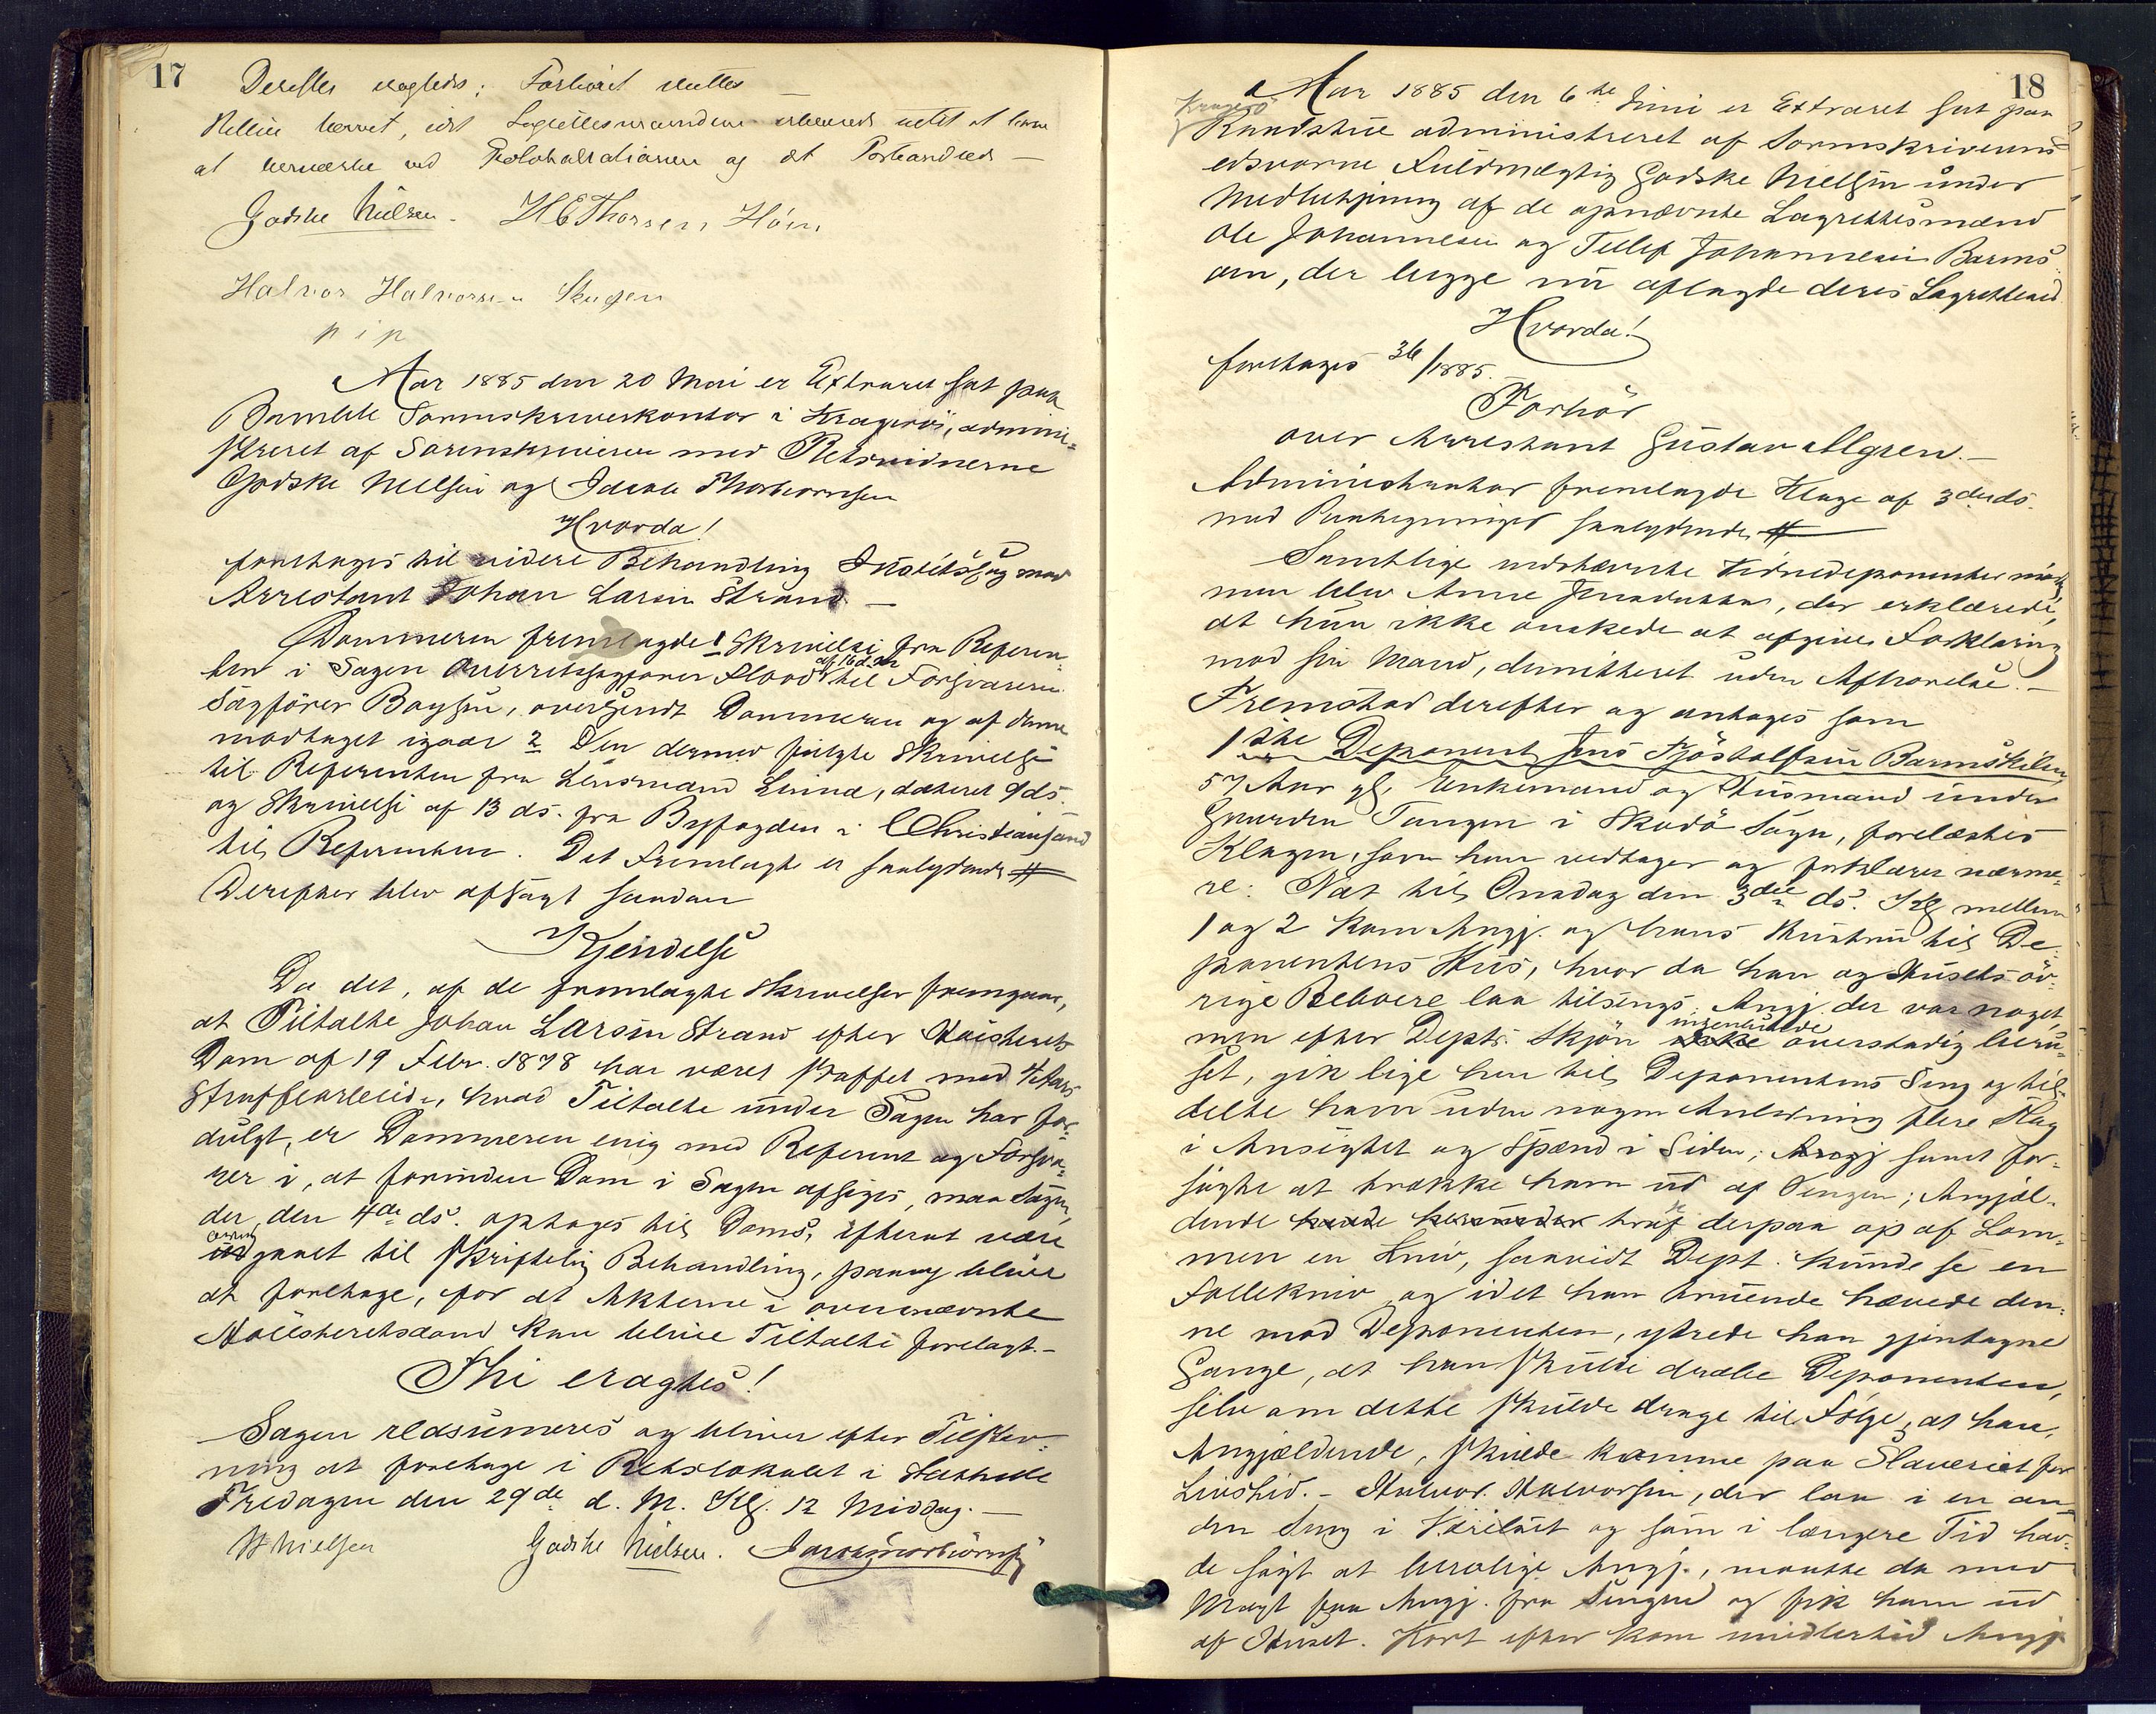 17
Derefter eragtedes: Forhöret sluttes —
Retten hævet, idet Lagrettesmændene
at bemærke ved Protokollationen og det Forhandlede —
Godske Nielsen. H E Thorsen Höin
Halvor Halvorsen Skugen
p i p
Aar 1885 den 20 Mai er Extraret sat paa
Bamble Sorenskriverkontor i Kragerö, admini=
streret af Sorenskriveren med Retsvidnerne
Godske Nielsen og Jacob Thorbiörnsen
Hvorda!
foretoges til videre Behandling Justitssag mod
Arrestant Johan Larsen Strand —
Dommeren fremlagde 1 Skrivelse fra Referen-
ten i Sagen Overretssagförer Flood af 16 d. M. til Forsvareren
Sagförer Boysen, oversendt Dommeren og af denne
modtaget igaar 2 Den dermed fulgte Skrivelse
til Referenten fra Lensmand Lund, dateret 9 ds.
og Skrivelse af 13 ds. fra Byfogden i Christiansand
til Referenten. Det Fremlagte er saalydende #
Derefter blev afsagt saadan
Kjendelse
Da det, af de fremlagte Skrivelser fremgaar,
at Tiltalte Johan Larsen Strand efter Höiesterets
Dom af 19 Febr. 1878 har været straffet med 4 Aars
Strafarbeide, hvad Tiltalte under Sagen har for=
dulgt, er Dommeren enig med Referent og Forsva=
rer i, at forinden Dom i Sagen afsiges, maa Sagen,
der, den 4de ds. optoges til Doms, efterat være
overgaaet til skriftelig Behandling, paany blive
at foretage, for at Akterne i overnævnte
Höiesteretsdom kan blive Tiltalte forelagt. —
Thi eragtes!
Sagen reassumeres og bliver efter Tilstev=
ning at foretage i Retslokalet i Stathelle
Fredagen den 29de d. M. Kl. 12 Middag. —
Nielsen Godske Nielsen. Jacob Thorbiörnsen
18
Aar 1885 den 6te Juni er Extraret sat paa
Kragerö
Raadstue administreret af Sorenskriverens
edsvorne Fuldmægtig Godske Nielsen under
Medbetjening af de opnævnte Lagrettesmænd
Ole Johannesen og Tellef Johannesen Barms=
oen, der begge nu aflagde deres Lagretteed
Hvorda!
foretoges 36/1885.
Forhör
over Arrestant Gustav Algren. —
Administrator fremlagde Klage af 3die ds.
med Paategninger saalydende #
Samtlige indstævnte Vidnedeponenter mödte
men blev Anne Jensdatter, der erklærede,
at hun ikke önskede at afgive Forklaring
mod sin Mand, dimitteret uden Afhörelse. —
Fremstod derefter og antoges som
1ste Deponent Jens Kjöstolfsen Barmskilen,
57 Aar gl, Enkemand og Husmand under
Gaarden Tangen i Skaadö Sogn, forelæstes
Klagen, som han vedtager og forklarer nærme=
re: Nat til Onsdag den 3die ds. Kl mellem
1 og 2 kom Angj. og hans Hustru til De=
ponentens Hus, hvor da han og Husets öv=
rige Beboere laa tilsengs. Angj. der var noget,
men efter Depts. Skjön ingenlunde overstadig beru=
set, gik lige hen til Deponentens Seng og til=
delte ham uden nogen Anledning flere Slag
i Ansigtet og Spænd i Siden, Angj samt for=
sögte at trække ham ud af Sengen; Angjæl-
dende trak derpaa op af Lom=
men en Kniv, saavidt Dept. kunde se en
Follekniv og idet han truende hævede den=
ne mod Deponenten, ytrede han gjentagne
Gange, at han skulde dræbe Deponenten,
selv om dette skulde drage til Fölge, at han,
Angjældende, skulde komme paa Slaveriet for
Livstid. – Halvor Halvorsen, der laa i en an=
den Seng i Værelset og som i længere Tid hav=
de sögt at berolige Angj., maatte da med
Magt faa Angj. fra Sengen og fik ham ud
af Huset. Kort efter kom imidlertid Angj